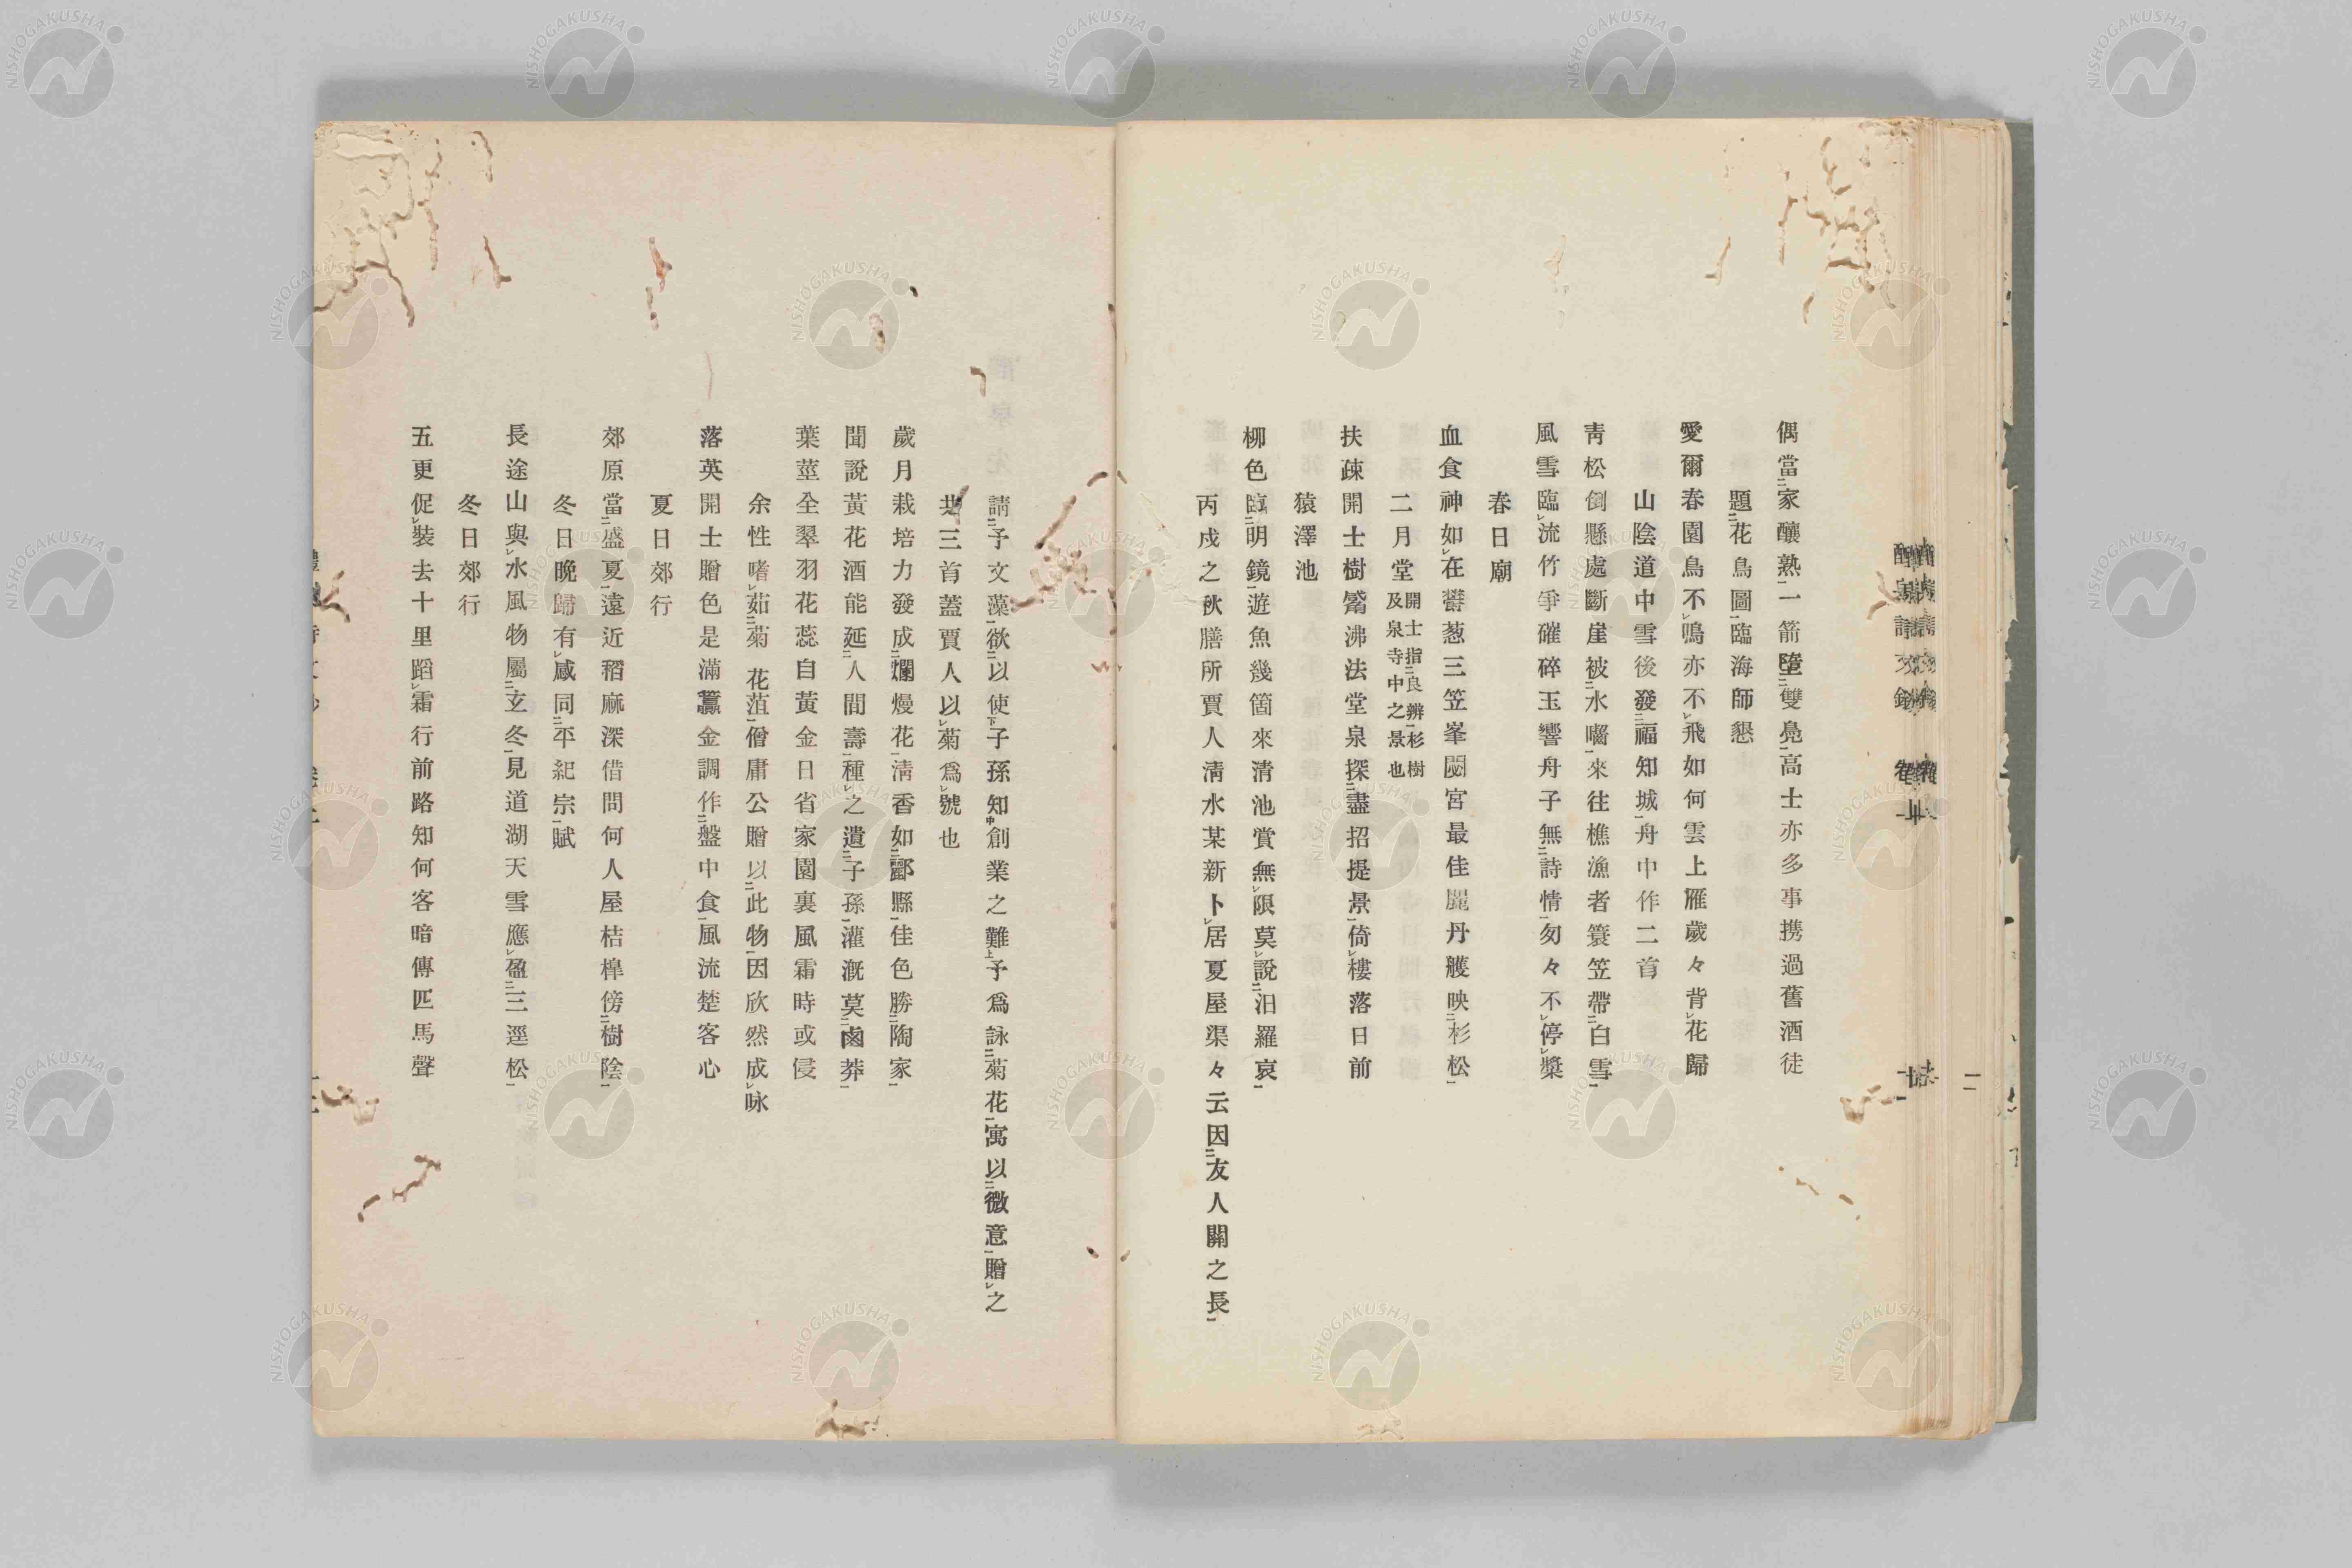 偶當家釀熟一箭墮雙鳧高士亦多事携過舊酒徒
題花鳥圖臨海師懇
愛爾春園鳥不鳴亦不飛如何雲上雁歲々背花歸
山陰道中雪後發福知城舟中作二首
靑松倒懸處斷崖被水囓來往樵漁者簑笠帶白雪
風雪臨流竹爭確碎玉響舟子無詩情匆々不停槳
春日廟
血食神如在欝葱三笠峯閟宮最佳麗丹艧映杉松
二月堂開士指良辨杉樹及泉寺中之景也
扶疎開士樹觱沸法堂泉探盡招提景倚樓落日前
猿澤池
柳色臨明鏡遊魚幾箇來清池賞無限莫說汨羅哀
丙戌之秋膳所賈人淸水某新卜居夏屋渠々云因友人關之長
請予文藻欲以使子孫知創業之難予爲詠菊花寓以微意贈之
共三首蓋賈人以菊爲號也
歲月栽培力發成爛熳花淸香如酈縣佳色勝陶家
聞說黃花酒能延人間壽種之遺子孫灌漑莫鹵莽
葉莖全翠羽花蕊自黃金日省家園裏風霜時或侵
余性嗜茹菊花菹僧庸公贈以此物因欣然成咏
落英開士贈色是滿籝金調作盤中食風流楚客心
夏日郊行
郊原當盛夏遠近稻麻深借問何人屋桔槹傍樹陰
冬日晩歸有感同平紀宗賦
長途山與水風物屬玄冬見道湖天雪應盈三逕松
冬日郊行
五更促裝去十里蹈霜行前路知何客暗傳匹馬聲
二
NISHOGAKUSHA